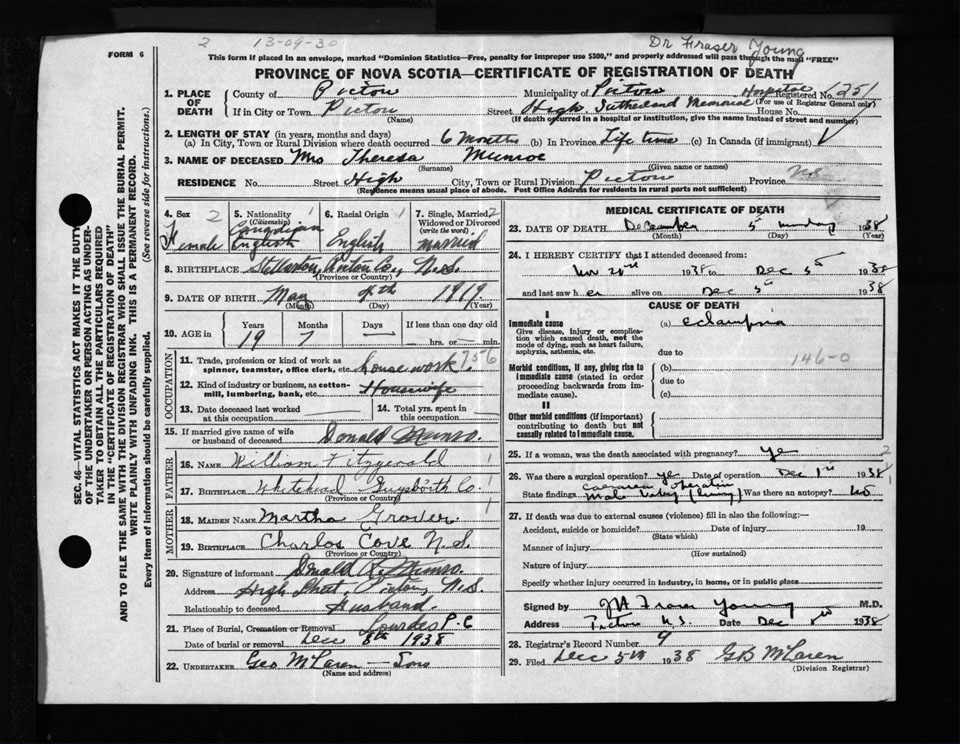 FORM 6
2 13-09-30 Dr Fraser Young
This form if placed in an envelope, marked "Dominion Statistics—Free, penalty for improper use $300," and properly addressed will pass through the mail "FREE"
PROVINCE OF NOVA SCOTIA—CERTIFICATE OF REGISTRATION OF DEATH
1. PLACE OF DEATH
County of Pictou Municipality of Pictou Hospital Registered No. 6251
(For use of Registrar General only)
If in City or Town Pictou Street High, Sutherland Memorial House No.
(Name) (If death occurred in a hospital or institution, give the name instead of street and number)
2. LENGTH OF STAY (in years, months and days)
(a) In City, Town or Rural Division where death occurred 6 months (b) In Province Life time (c) In Canada (if immigrant)
3. NAME OF DECEASED Mrs Theresa Munroe
(Surname) (Given name or names)
RESIDENCE No. Street High City, Town or Rural Division Pictou Province N.S.
(Residence means usual place of abode. Post Office Address for residents in rural parts not sufficient)
4. Sex 2 Female
5. Nationality (Citizenship) 1 Canadian English
6. Racial Origin 1 English
7. Single, Married, Widowed or Divorced (write the word) 2 married
8. BIRTHPLACE Stellarton, Pictou Co., N.S.
(Province or Country)
9. DATE OF BIRTH May 4th 1919
(Month) (Day) (Year)
10. AGE in Years Months Days If less than one day old
19 7 hrs. or min.
OCCUPATION
11. Trade, profession or kind of work as spinner, teamster, office clerk, etc. housework 756
12. Kind of industry or business, as cotton-mill, lumbering, bank, etc. Housewife
13. Date deceased last worked at this occupation
14. Total yrs. spent in this occupation
15. If married give name of wife or husband of deceased Donald Munro.
FATHER
16. Name William Fitzgerald 1
17. Birthplace Whitehead Guysboro Co.
(Province or Country)
MOTHER
18. Maiden Name Martha Grover 1
19. Birthplace Charlos Cove N.S.
(Province or Country)
20. Signature of informant Donald R. Munro.
Address High Street, Pictou, N.S.
Relationship to deceased Husband.
21. Place of Burial, Cremation or Removal Lourdes P.C
Date of burial or removal Dec 8th 1938
22. Undertaker Geo McLaren — Sons
(Name and address)
MEDICAL CERTIFICATE OF DEATH
23. DATE OF DEATH December 5 Sunday 1938
(Month) (Day) (Year)
24. I HEREBY CERTIFY that I attended deceased from:
1938 to Dec 5th 1938
and last saw her alive on Dec 5th 1938
CAUSE OF DEATH
I
Immediate cause
Give disease, injury or complication which caused death, not the mode of dying, such as heart failure, asphyxia, asthenia, etc.
(a) eclampsia
due to
Morbid conditions, if any, giving rise to immediate cause (stated in order proceeding backwards from immediate cause).
(b) 146-0
due to
(c)
II
Other morbid conditions (if important) contributing to death but not causally related to immediate cause.
25. If a woman, was the death associated with pregnancy? yes 2
26. Was there a surgical operation? yes Date of operation Dec 1st 1938 1
Caesarean operation
State findings Male baby (living) Was there an autopsy? no
27. If death was due to external causes (violence) fill in also the following:—
Accident, suicide or homicide? Date of injury 19
(State which)
Manner of injury
(How sustained)
Nature of injury
Specify whether injury occurred in industry, in home, or in public place
Signed by JH Fraser Young M.D.
Address Pictou N.S. Date Dec 1938
28. Registrar's Record Number 9
29. Filed Dec 5th 1938 GB McLaren
(Division Registrar)
SEC. 46—VITAL STATISTICS ACT MAKES IT THE DUTY
OF THE UNDERTAKER OR PERSON ACTING AS UNDER-
TAKER TO OBTAIN ALL THE PARTICULARS REQUIRED
IN THE "CERTIFICATE OF REGISTRATION OF DEATH"
AND TO FILE THE SAME WITH THE DIVISION REGISTRAR WHO SHALL ISSUE THE BURIAL PERMIT.
WRITE PLAINLY WITH UNFADING INK. THIS IS A PERMANENT RECORD.
Every item of information should be carefully supplied. (See reverse side for instructions.)